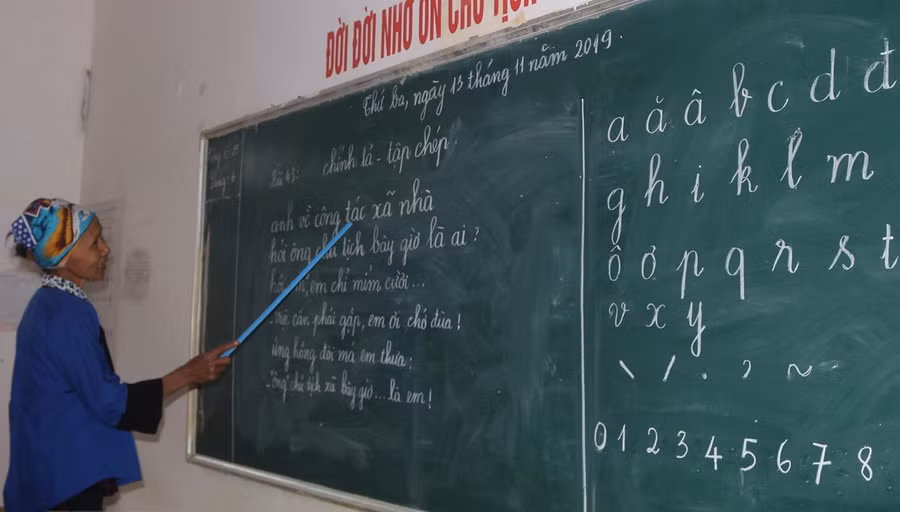 ĐỜI ĐỜI NHỚ ƠN CHỦ TỊCH
Thứ ba, ngày 13 tháng 11 năm 2019.
Bài 43: chính tả - tập chép.
anh về công tác xã nhà
hỏi ông chủ tịch bây giờ là ai?
em chỉ mỉm cười...
việc cần phải gặp, em ơi chớ đùa!
ửng hồng đôi má em thưa:
- Ông chủ tịch xã bây giờ... là em!
a ă â b c d đ
g h i k l m
ô ơ p q r s t
v x y
\ / . ? ~
0 1 2 3 4 5 6 7 8